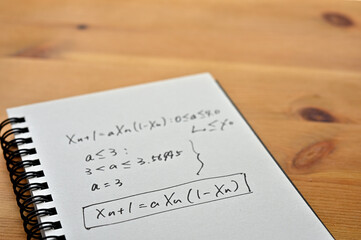 Xn+1=aXn(1-Xn):0≤a≤4.0
a≤3:
3<a≤3.56995
a=3
Xn+1=aXn(1-Xn)